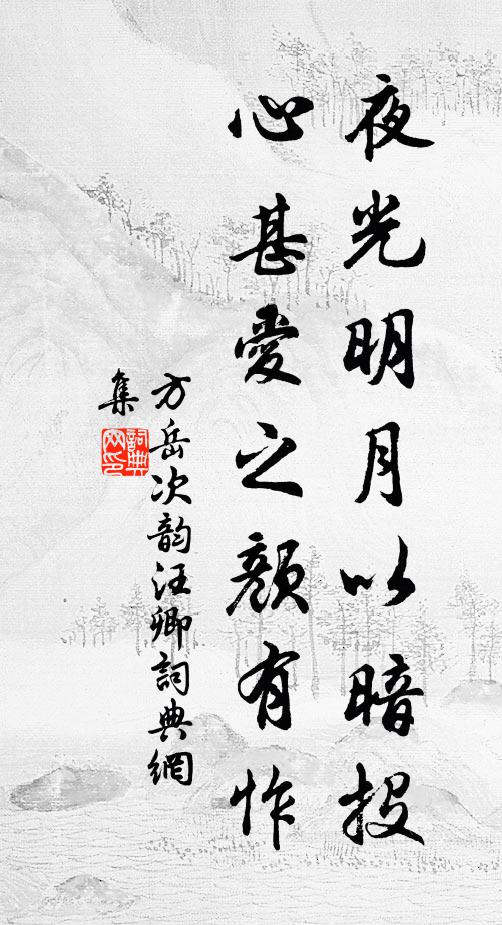 夜光明月以暗投
心甚愛之顏有怍
方岳次韵汪卿詞典網
集
詞典網印